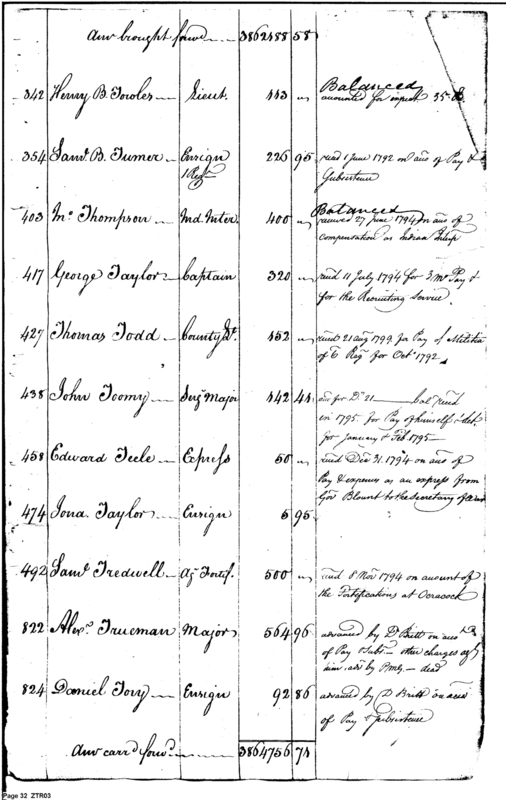 Amt brought forwd 3862488 58
342 Henry B. Towles Lieut. 443 " Balanced
accounted for 35
354 Saml B. Turner Ensign 226 95 recd 1 June 1792 on acct of Pay &
1 Regt Subsistence
403 Jno Thompson Ind. Inter. 400 " Balanced
received 27 June 1794 on acct of
compensation as Indian Interp
417 George Taylor Captain 320 " recd 11 July 1794 for 3 Mo Pay &
for the Recruiting Service
427 Thomas Todd County Lt. 452 " recd 21 Aug 1794 for Pay of Militia
of 6 Regt for Octr 1792
438 John Toomy Serjt Major 442 44 due for Do 21 Bal recd
in 1795. for Pay of himself & det
for January & Feb 1795
458 Edward Teele Express 50 " recd Decr 31. 1794 on acct of
Pay & expences as an express from
Govr Blount to the Secretary of War
474 Jona. Taylor Ensign 5 95
492 Saml Tredwell Agt Fortif. 500 " recd 8 Novr 1794 on account of
the Fortifications at Ocracock
822 Alexr. Trueman Major 564 96 advanced by D Britt on acct
of Pay & Subs. other charges agt
him adv by Pmg. dead
824 Daniel Tory Ensign 92 86 advanced by D Britt on acct
of Pay & Subsistence
Amt carrd forwd. 3864756 74
Page 32 ZTR03